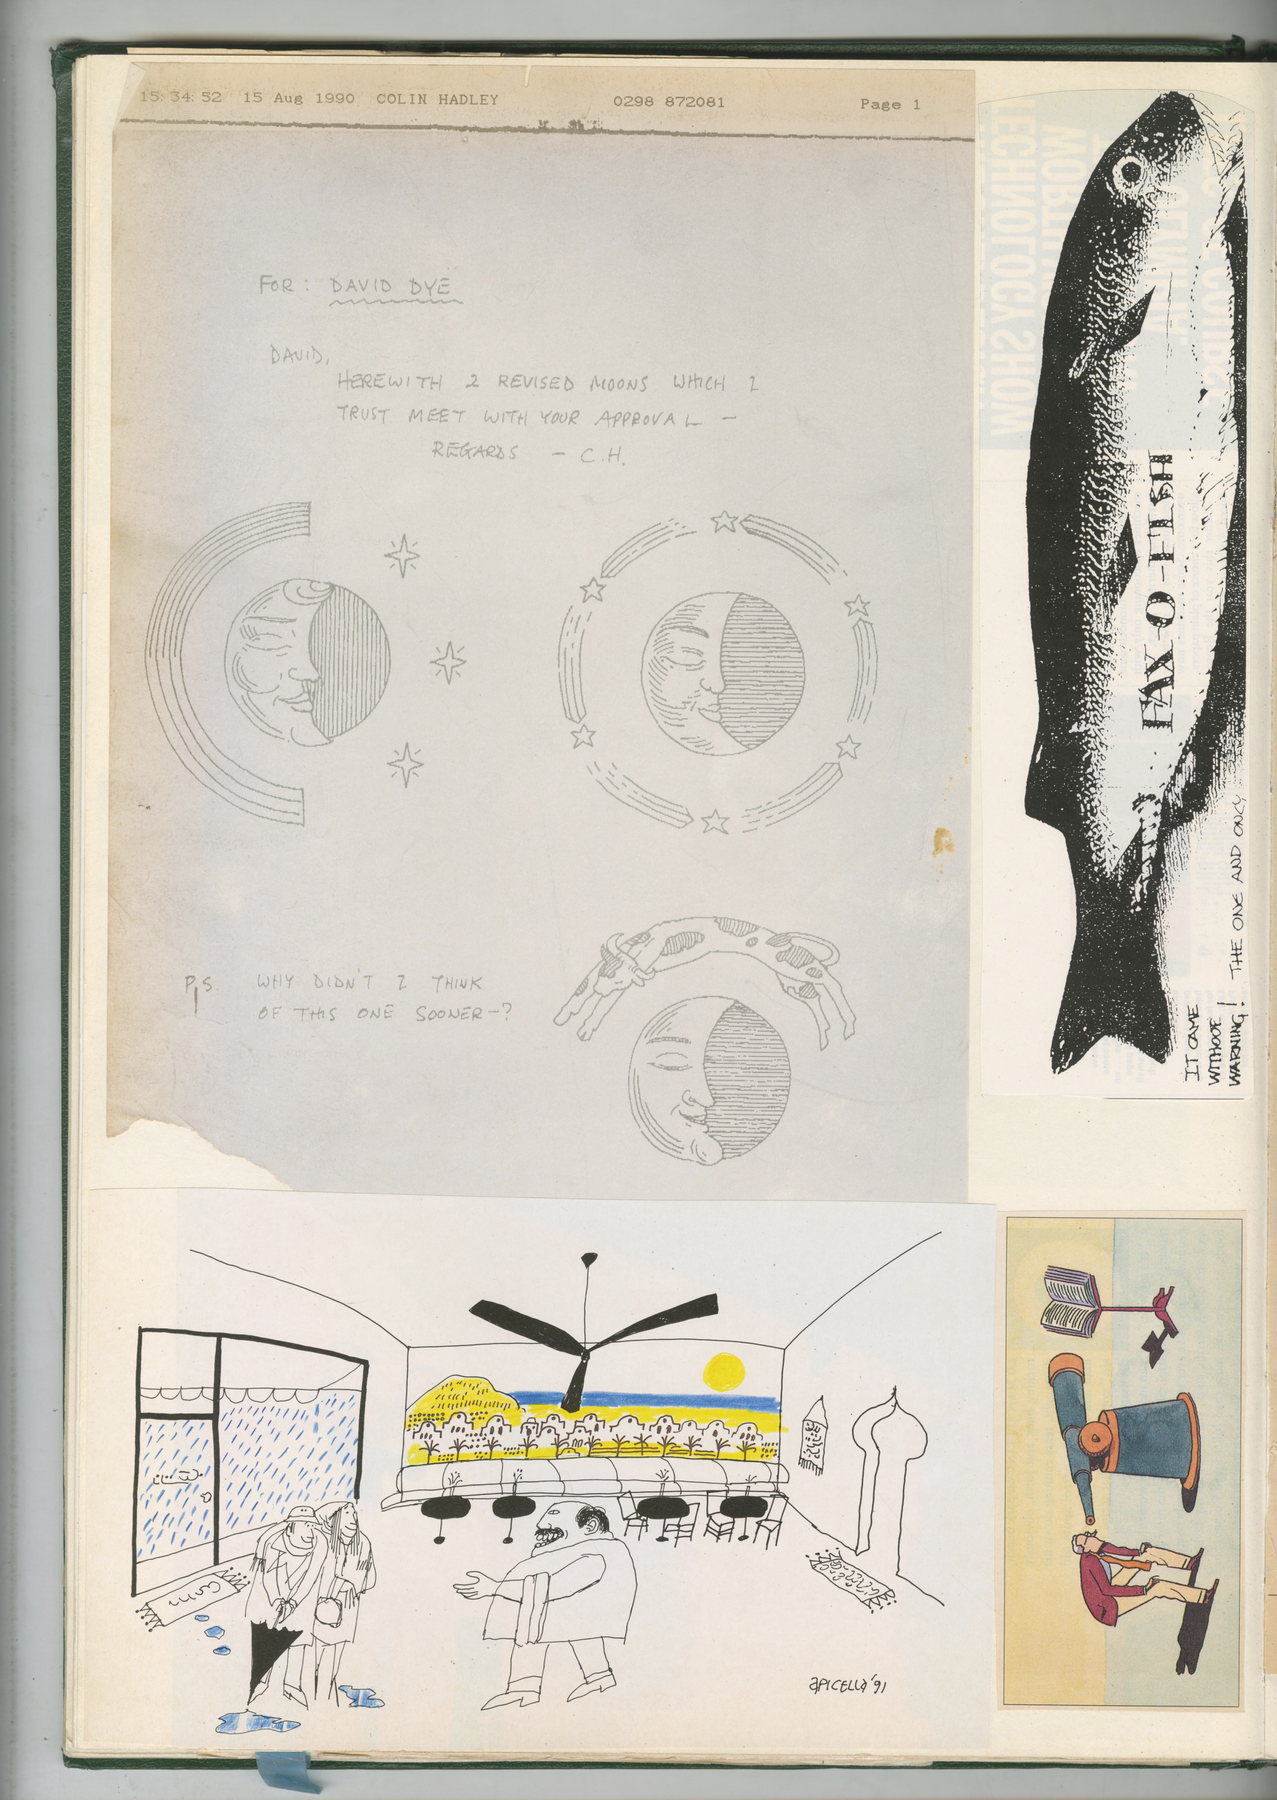 15:34:52 15 Aug 1990 COLIN HADLEY 0298 872081 Page 1
FOR: DAVID DYE
DAVID,
HEREWITH 2 REVISED MOONS WHICH I
TRUST MEET WITH YOUR APPROVAL –
REGARDS – C.H.
P.S. WHY DIDN'T I THINK
OF THIS ONE SOONER –?
FAX-O-FISH
IT CAME
WITHOOT
WARNING! THE ONE AND ONLY
TECHNOLOGY SHOW
WORTH
apicella '91